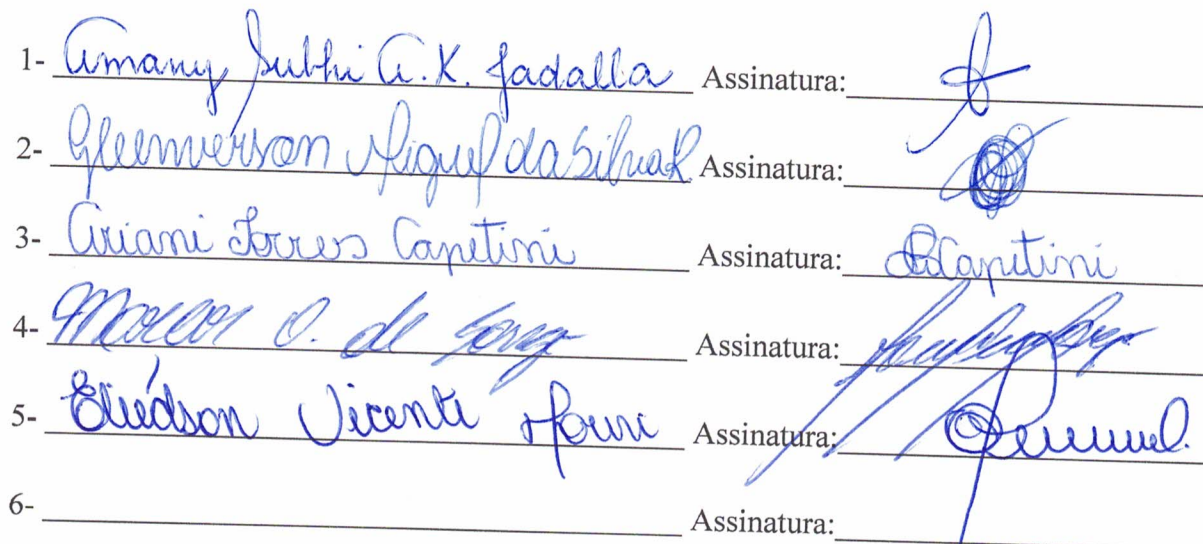 1- Amany Subhi A. K. Jadalla Assinatura:
2- Gleenverson Miguel da Silva R. Assinatura:
3- Ariani Torres Capetini Assinatura: Capetini
4- O. de Assinatura:
5- Eliédson Vicenti Assinatura:
6- Assinatura: